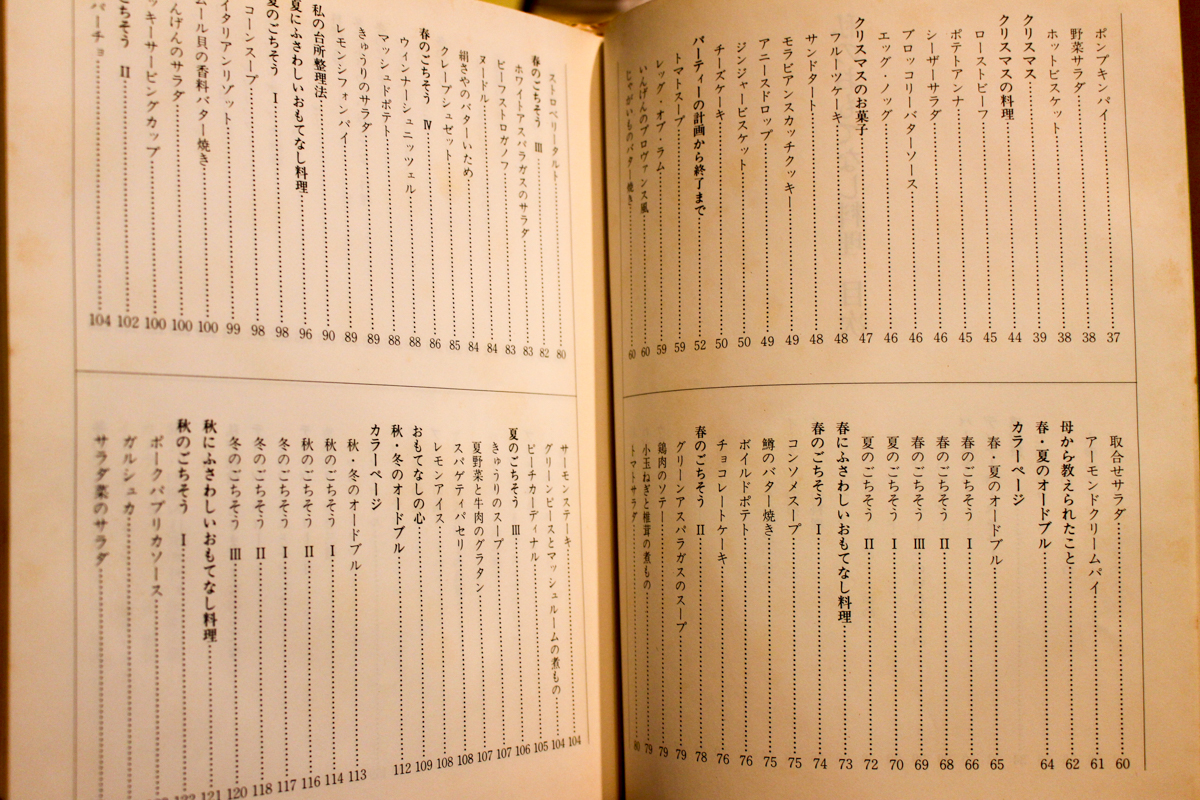 ポンプキンパイ……37
野菜サラダ……38
ホットビスケット……38
クリスマス……39
クリスマスの料理……44
ローストビーフ……45
ポテトアンナ……45
シーザーサラダ……46
ブロッコリーバターソース……46
エッグ・ノッグ……46
クリスマスのお菓子……47
フルーツケーキ……48
サンドタート……48
モラビアンスカッチクッキー……49
アニースドロップ……49
ジンジャービスケット……50
チーズケーキ……50
パーティーの計画から終了まで……52
トマトスープ……59
レッグ・オブ・ラム……59
いんげんのプロヴァンス風……60
じゃがいものバター焼き……60
取合せサラダ……60
アーモンドクリームパイ……61
母から教えられたこと……62
春・夏のオードブル……64
カラーページ
春・夏のオードブル……65
春のごちそう Ⅰ……66
春のごちそう Ⅱ……68
春のごちそう Ⅲ……69
夏のごちそう Ⅰ……70
夏のごちそう Ⅱ……72
春にふさわしいおもてなし料理……73
春のごちそう Ⅰ……74
コンソメスープ……75
鱒のバター焼き……75
ボイルドポテト……76
チョコレートケーキ……76
春のごちそう Ⅱ……78
グリーンアスパラガスのスープ……79
鶏肉のソテー……79
小玉ねぎと椎茸の煮もの……79
トマトサラダ……80
ストロベリータルト……80
春のごちそう Ⅲ……82
ホワイトアスパラガスのサラダ……83
ビーフストロガノフ……83
ヌードル……84
絹さやのバターいため……84
クレープシュゼット……85
春のごちそう Ⅳ……86
ウィンナーシュニッツェル……88
マッシュドポテト……88
きゅうりのサラダ……89
レモンシフォンパイ……89
私の台所整理法……90
夏にふさわしいおもてなし料理……96
夏のごちそう Ⅰ……98
コーンスープ……98
イタリアンリゾット……99
ムール貝の香料バター焼き……100
んげんのサラダ……100
ッキーサービングカップ……100
ちそう Ⅱ……102
パーチョ……104
サーモンステーキ……104
グリーンピースとマッシュルームの煮もの……104
ピーチカーディナル……105
夏のごちそう Ⅲ……106
きゅうりのスープ……107
夏野菜と牛肉のグラタン……107
スパゲティパセリ……108
レモンアイス……108
おもてなしの心……109
秋・冬のオードブル……112
カラーページ
秋・冬のオードブル……113
秋のごちそう Ⅰ……114
秋のごちそう Ⅱ……116
冬のごちそう Ⅰ……117
冬のごちそう Ⅱ……118
冬のごちそう Ⅲ……120
秋にふさわしいおもてなし料理……121
秋のごちそう Ⅰ……122
ポークパプリカソース……
ガルシュカ……
サラダ菜のサラダ……